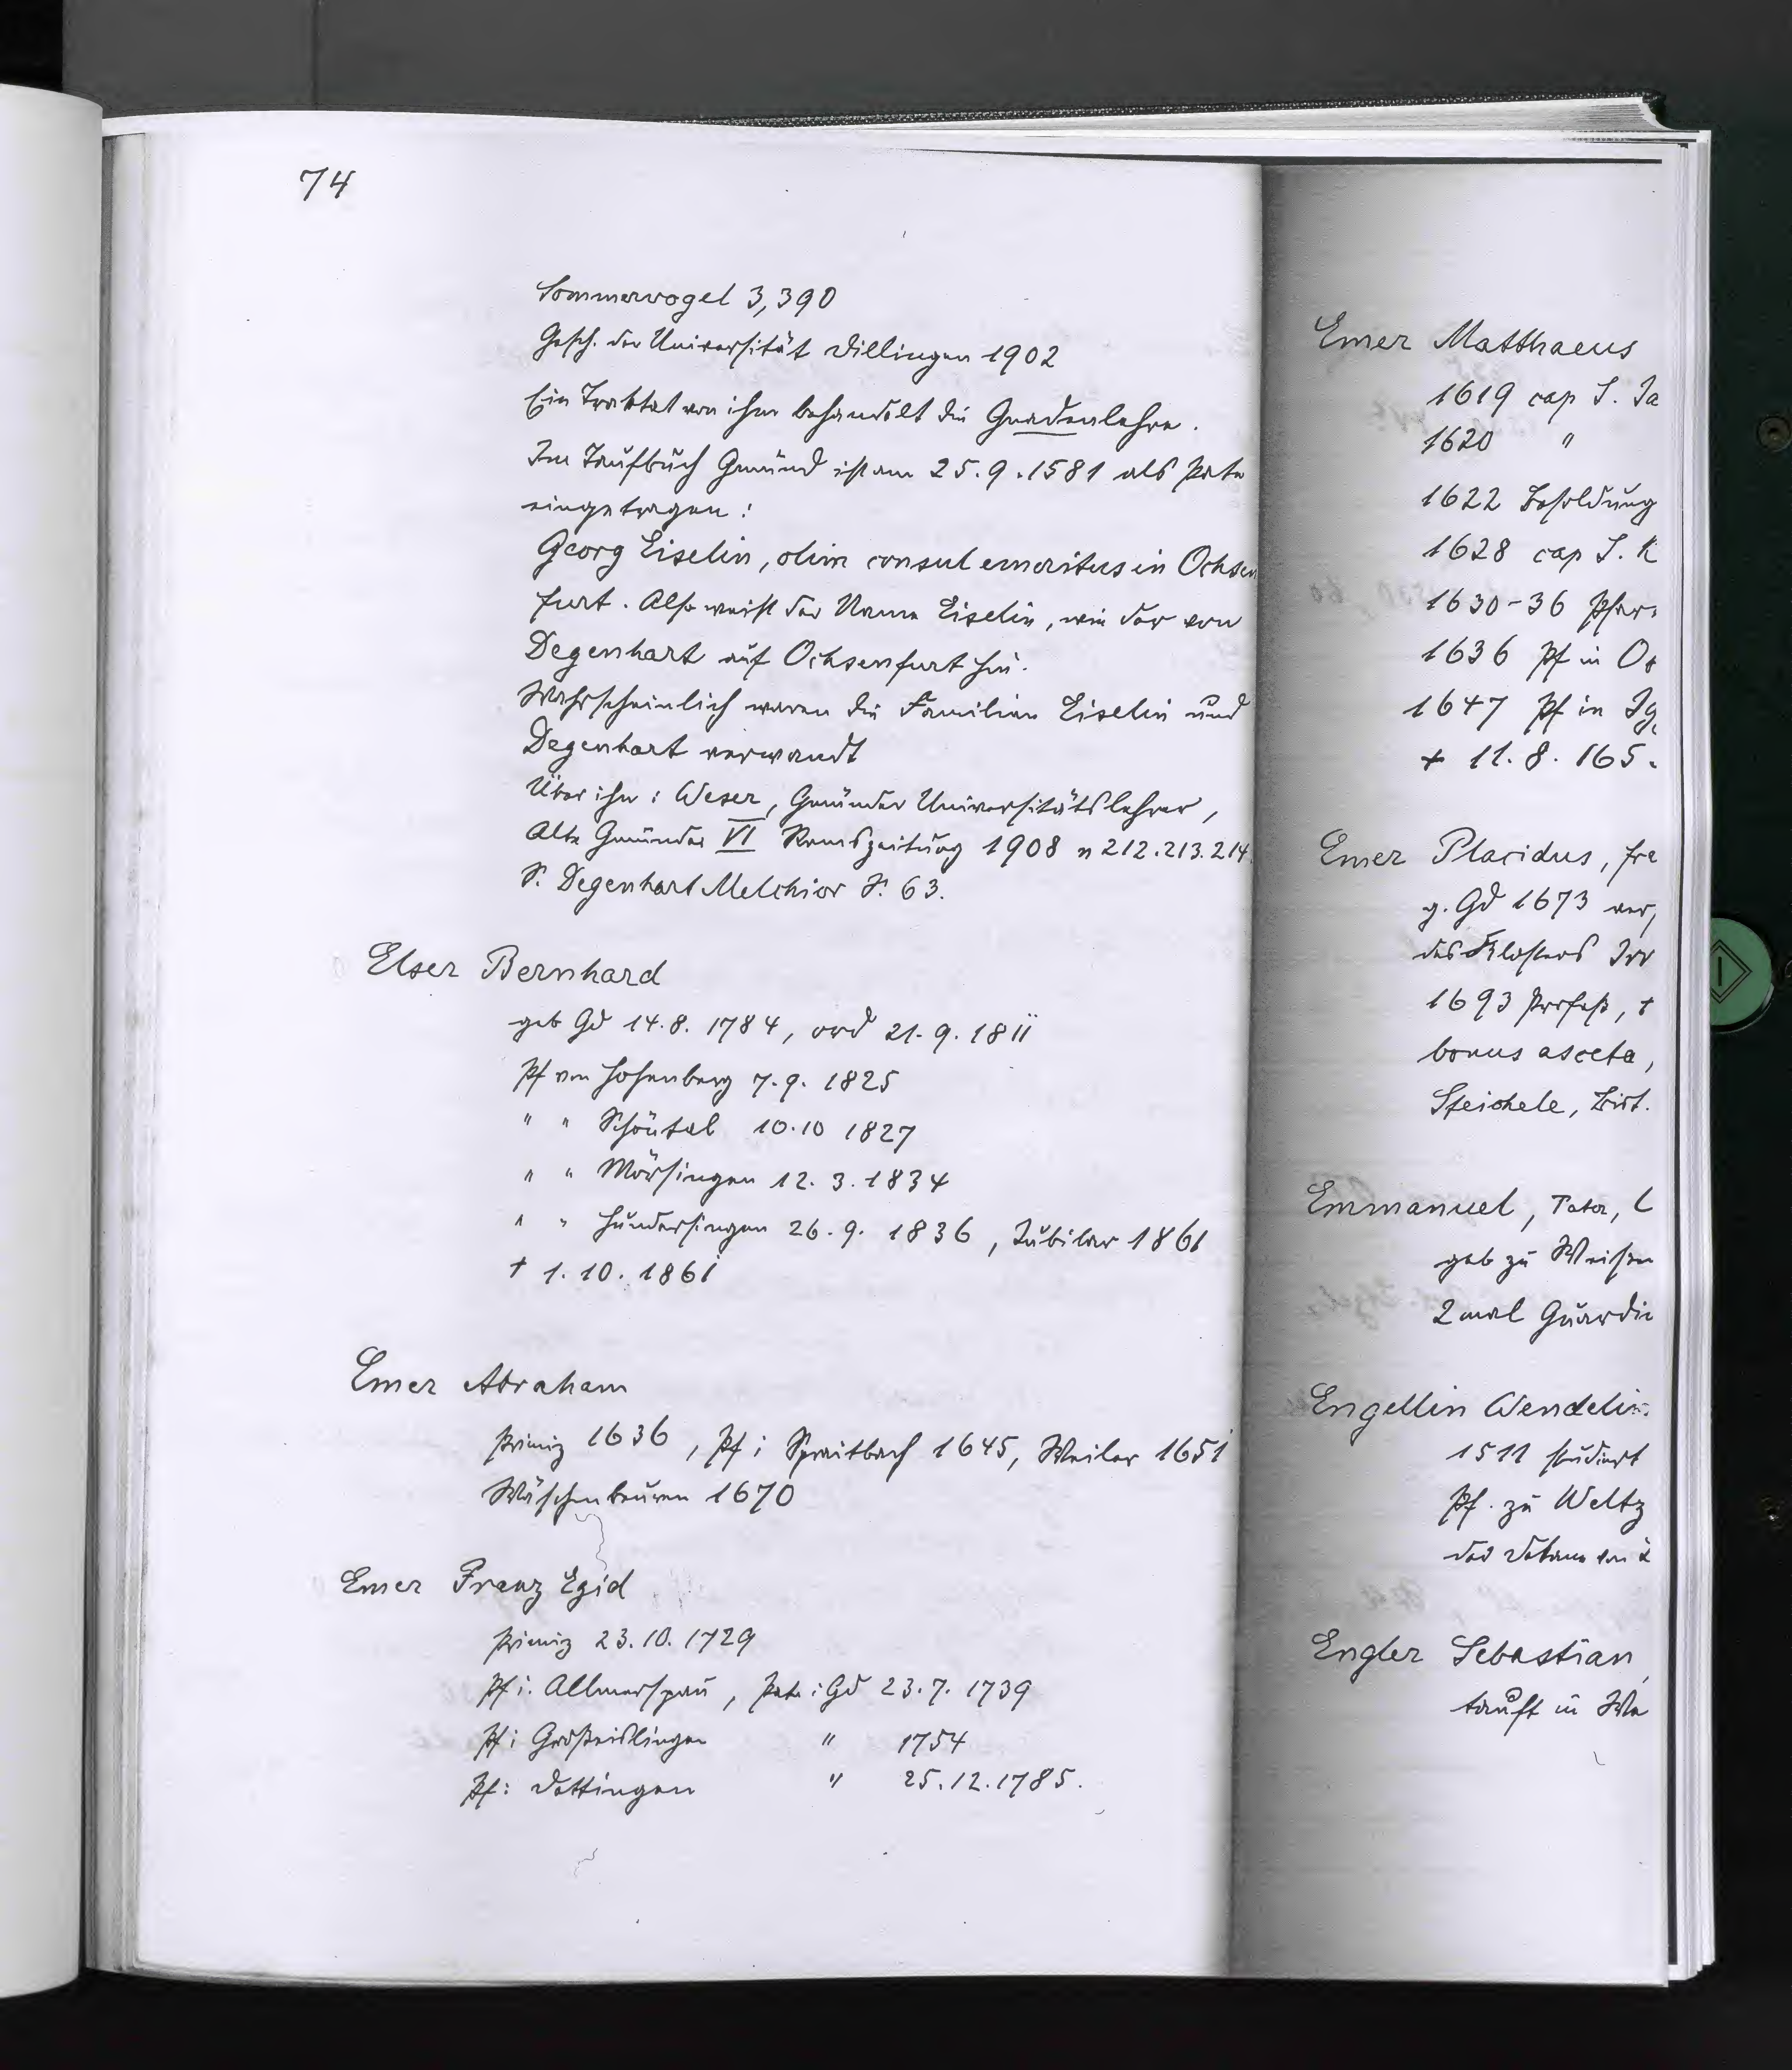 74
Sommervogel 3,390
Gesch. der Universität Dillingen 1902
Ein Traktat von ihm behandelt die Gnadenlehre.
Im Taufbuch Gmünd ist am 25.9.1581 als Pate
eingetragen:
Georg Eiselin, olim consul emeritus in Ochsen
furt. Also weist der Name Eiselin, wie der von
Degenhart auf Ochsenfurt hin.
Wahrscheinlich waren die Familien Eiselin und
Degenhart verwandt
Über ihn: Weser, Gmünder Universitätslehrer,
Alte Gmünder VI Remszeitung 1908 n 212.213.214.
S. Degenhart Melchior S. 63.
Elser Bernhard
geb Gd 14.8. 1784, ord 21.9.1811
Pf von Hohenberg 7.9. 1825
" " Schöntal 10.10 1827
" " Mörsingen 12.3.1834
" " Hundersingen 26.9. 1836, Jubilar 1861
† 1.10.1861
Emer Abraham
Primiz 1636, Pf i Spraitbach 1645, Weiler 1651
Wäschenbeuren 1670
Emer Franz Egid
Primiz 23.10.1729
Pf i. Allmerspan, Pate i Gd 23.7.1739
Pf i Großeislingen " 1754
Pf i Dettingen " 25.12.1785.
Emer Matthaeus
1619 cap S. Ja
1620 "
1622 Besoldung
1628 cap S. K
1630-36 Pfar
1636 Pf in
1647 Pf in Ig
† 11.8. 165
Emer Placidus, fra
g. Gd 1673
des Klosters Irr
1693 Profeß, †
bonus asceta,
Steichele, Bist.
Emmanuel, Pater,
geb zu Weissen
2 mal Guardia
Engellin Wendelin
1511 studiert
Pf. zu Weltz
des Dekans von
Engler Sebastian
tauft in Wa